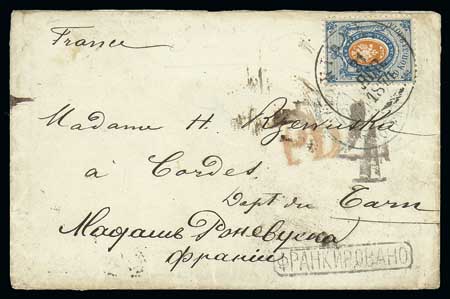 France
Madame H. Rzewuska
PD 4
à Cordes
Dept du Tarn
Мадамъ Ржевуска
франція
ФРАНКИРОВАНО